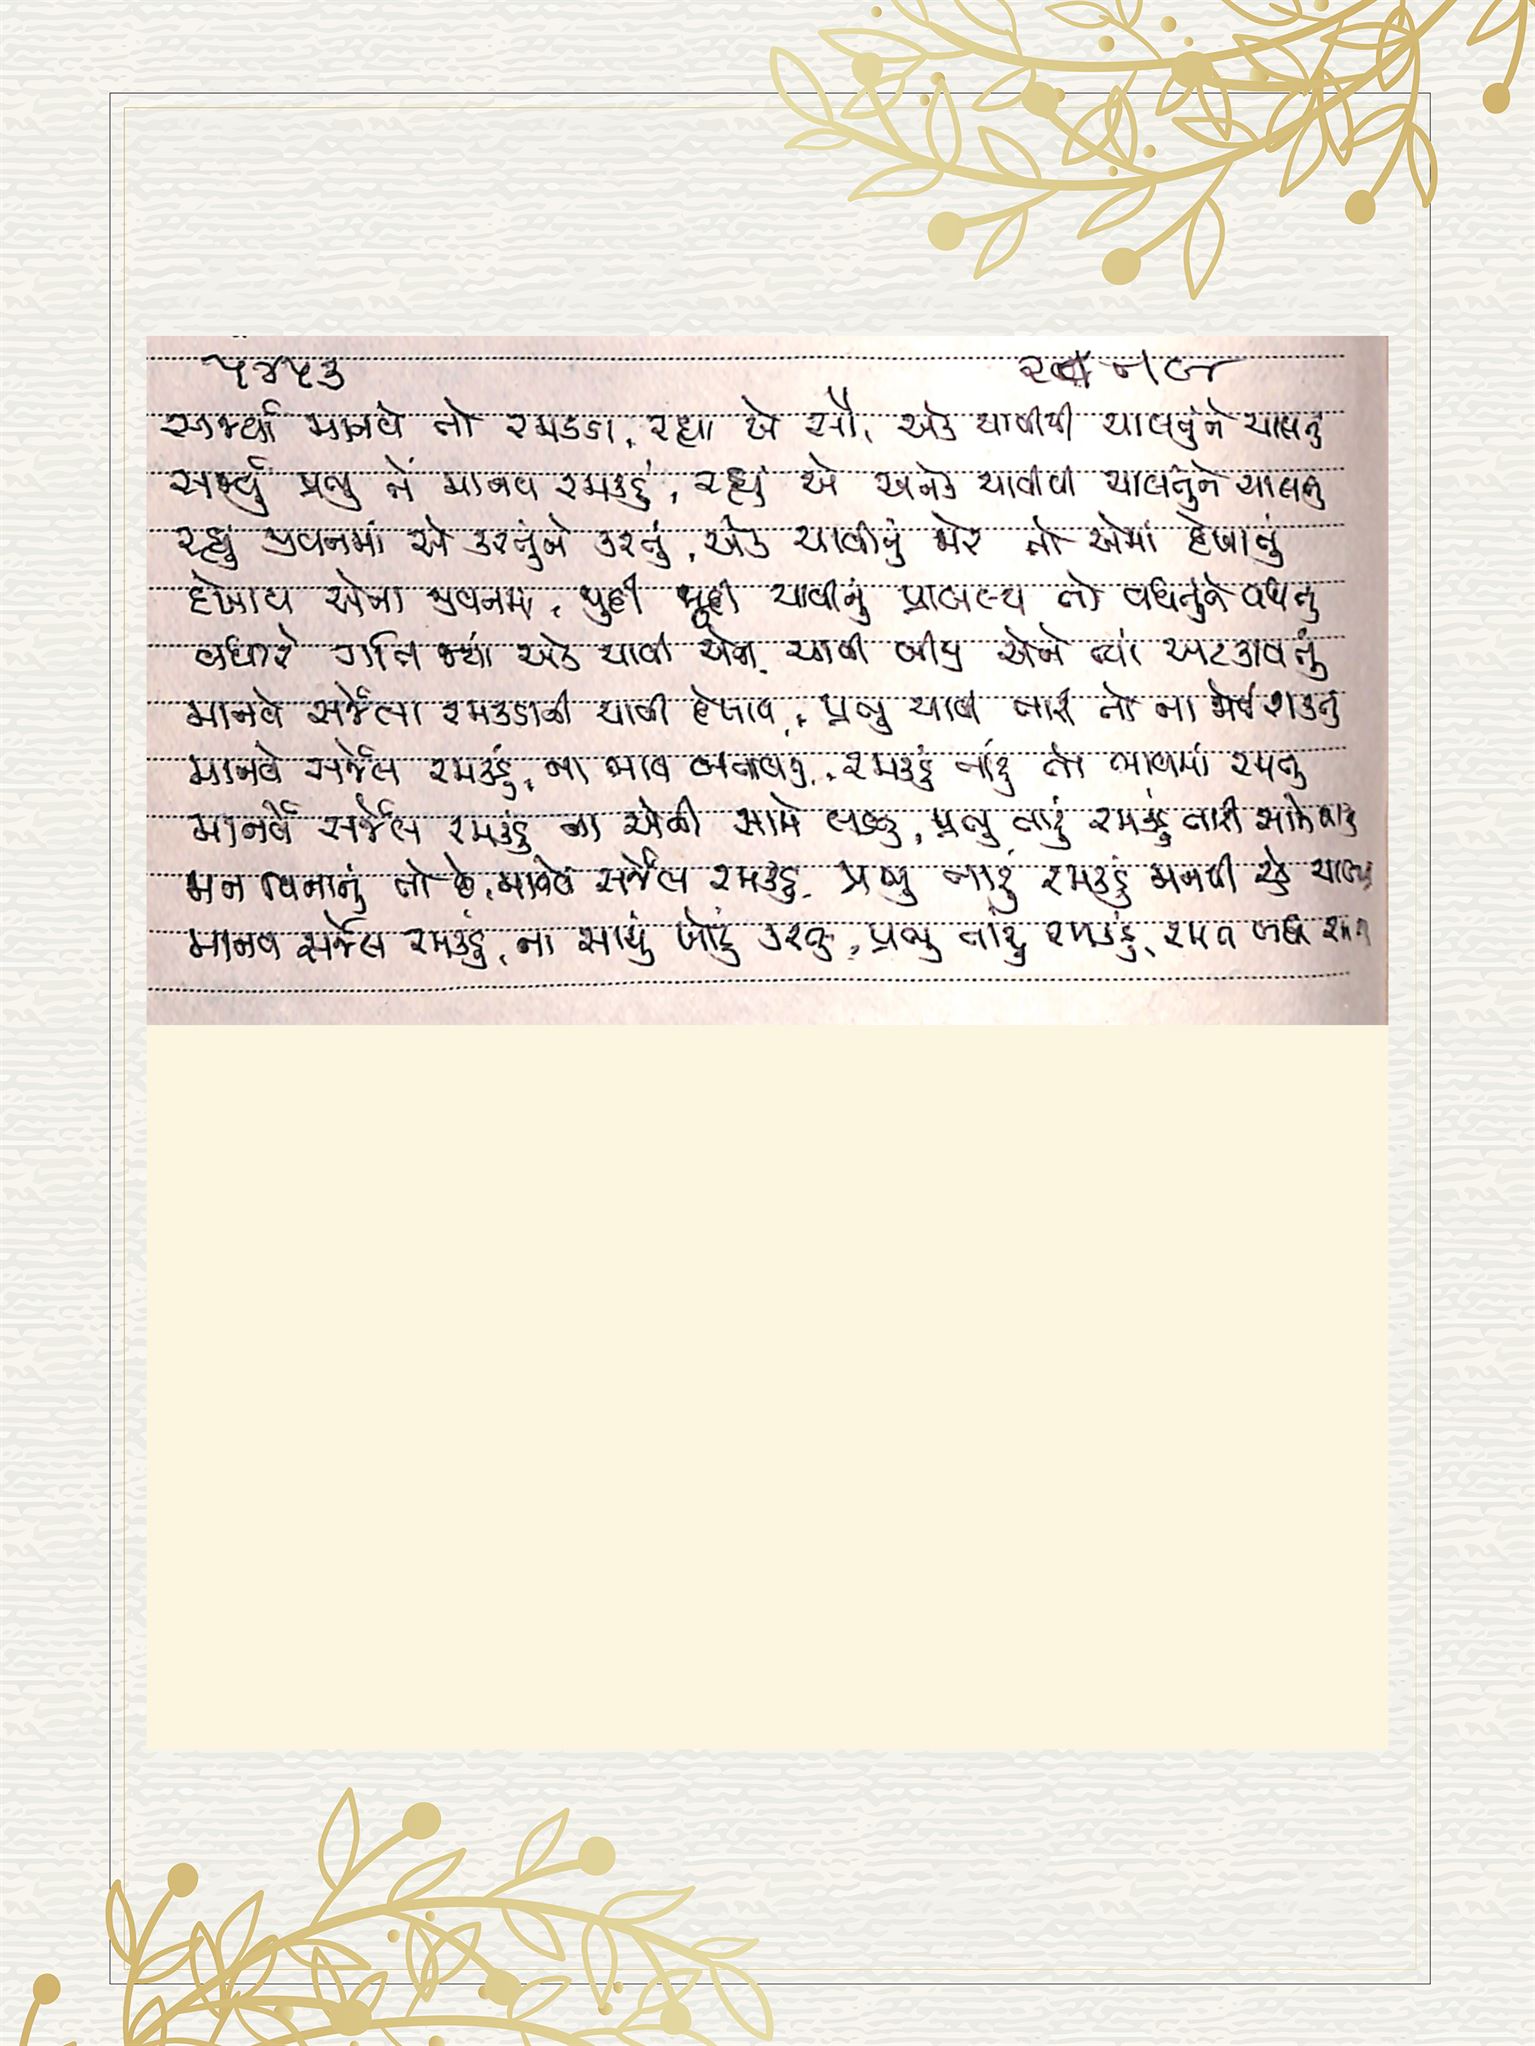 ૫૪૫૩
સર્જ્યા માનવે તો રમકડા, રહ્યા એ સૌ, એક ચાવીથી ચાલતું ને ચાલતુ
સર્જ્યું પ્રભુ નેં માનવ રમકડું, રહ્યું એ અનેક ચાવીથી ચાલતુંને ચાલતુ
રહ્યું જીવનમાં એ કરતુંને કરતું, એક ચાવીનું જોર તો એમાં દેખાતું
દેખાય એના જીવનમાં, જુદી જુદી ચાવીનું પ્રાબલ્ય તો વધતુંને વધતુ
વધારે ગતિ જ્યાં એક ચાવી એને, ચાવી બીજી એને ત્યાં અટકાવતું
માનવે સર્જેલા રમકડાની ચાવી દેખાય, પ્રભુ ચાવી તારી તો ના જોઈ શકતુ
માનવે સર્જેલ રમકડું, ના ભાવ બનાવતુ, રમકડું તારુ તો ભાવમાં રમતુ
માનવે સર્જેલ રમકડુ ના એની સામે લડતુ, પ્રભુ તારું રમકડું તારી સામે થાતુ
મન વિનાનું તો છે, માનવે સર્જેલ રમકડુ, પ્રભુ તારું રમકડું મનથી રહે ચાલતુ
માનવ સર્જેલ રમકડું, ના સાચું ખોટું કરતુ, પ્રભુ તારું રમકડું, રમત બધી